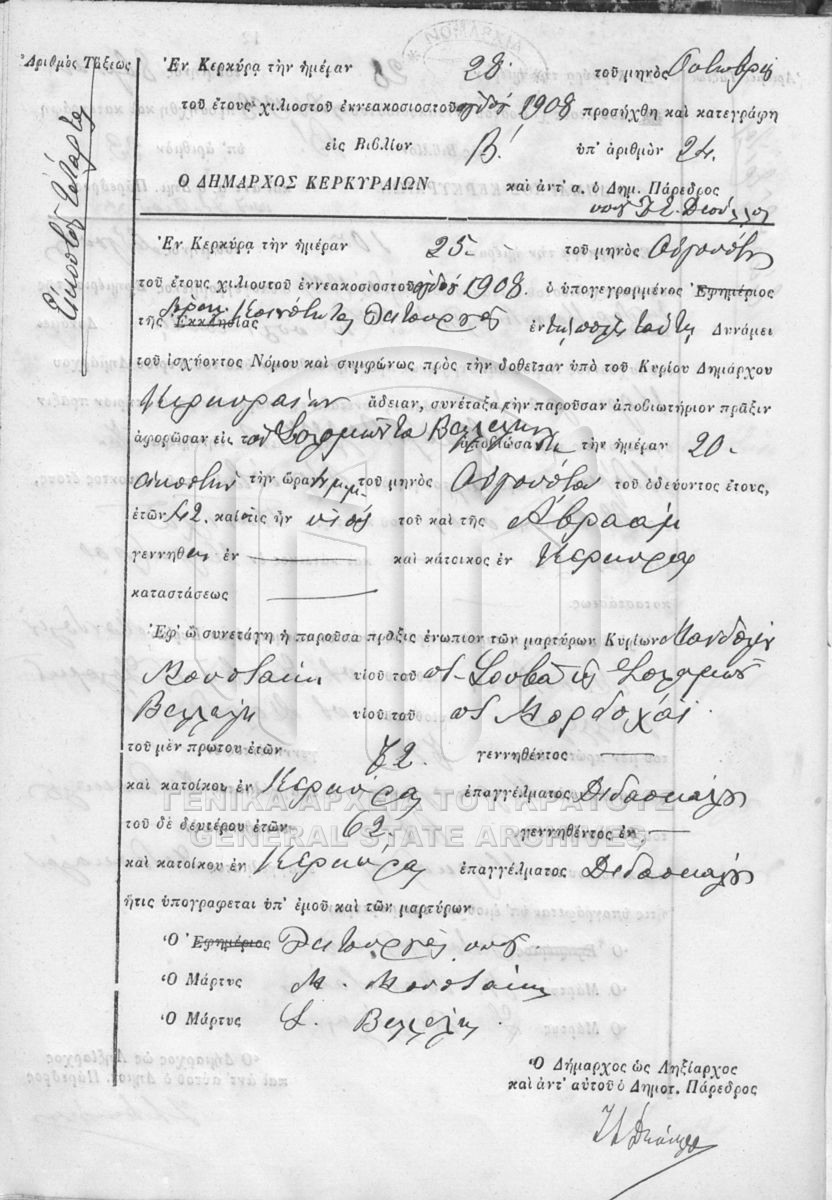 Ἀριθμὸς Τάξεως
Εἰκοστὸν τέταρτον
Ἐν Κερκύρᾳ τὴν ἡμέραν 28 τοῦ μηνὸς Ὀκτωβρίου
τοῦ ἔτους χιλιοστοῦ ἐννεακοσιοστοῦ ὀγδόου 1908 προσήχθη καὶ κατεγράφη
εἰς Βιβλίον Β΄. ὑπ' ἀριθμὸν 24.
Ο ΔΗΜΑΡΧΟΣ ΚΕΡΚΥΡΑΙΩΝ καὶ ἀντ' α. ὁ Δημ. Πάρεδρος
Ἐν Κερκύρᾳ τὴν ἡμέραν 25 τοῦ μηνὸς Αὐγούστου
τοῦ ἔτους χιλιοστοῦ ἐννεακοσιοστοῦ ὀγδόου 1908. ὁ ὑπογεγραμμένος Ἐφημέριος
τῆς Ἐκκλησίας Κοινότητος Λειτουργὸς ἐν τῇ πόλει ταύτῃ Δυνάμει
τοῦ ἰσχύοντος Νόμου καὶ συμφώνως πρὸς τὴν δοθεῖσαν ὑπὸ τοῦ Κυρίου Δημάρχου
Κερκυραίων ἄδειαν, συνέταξα τὴν παροῦσαν ἀποβιωτήριον πρᾶξιν
ἀφορῶσαν εἰς τὸν Σολομῶντα Βελλέλην ἀποβιώσαντα τὴν ἡμέραν 20
εἰκοστὴν τὴν ὥραν μ.μ. τοῦ μηνὸς Αὐγούστου τοῦ ὁδεύοντος ἔτους,
ἐτῶν 42. καὶ τις ἦν υἱὸς τοῦ καὶ τῆς Ἀβραὰμ
γεννηθεὶς ἐν καὶ κάτοικος ἐν Κερκύρᾳ
καταστάσεως
Ἐφ' ᾧ συνετάγη ἡ παροῦσα πρᾶξις ἐνώπιον τῶν μαρτύρων Κυρίων Μανδολὶν
Μουστάκη υἱοῦ τοῦ ποτ. Σολομὼν
Βελλέλη υἱοῦ τοῦ ποτ Μορδοχάι
τοῦ μὲν πρώτου ἐτῶν 72. γεννηθέντος
καὶ κατοίκου ἐν Κερκύρᾳ ἐπαγγέλματος Διδασκάλου
τοῦ δὲ δευτέρου ἐτῶν 62. γεννηθέντος ἐν
καὶ κατοίκου ἐν Κερκύρᾳ ἐπαγγέλματος Διδασκάλου
ἥτις ὑπογράφεται ὑπ' ἐμοῦ καὶ τῶν μαρτύρων
Ὁ Ἐφημέριος Λειτουργὸς υπογ.
Ὁ Μάρτυς Μ. Μουστάκης
Ὁ Μάρτυς Σ. Βελλέλη
Ὁ Δήμαρχος ὡς Ληξίαρχος
καὶ ἀντ' αὐτοῦ ὁ Δημοτ. Πάρεδρος
ΓΕΝΙΚΑ ΑΡΧΕΙΑ ΤΟΥ ΚΡΑΤΟΥΣ
GENERAL STATE ARCHIVES